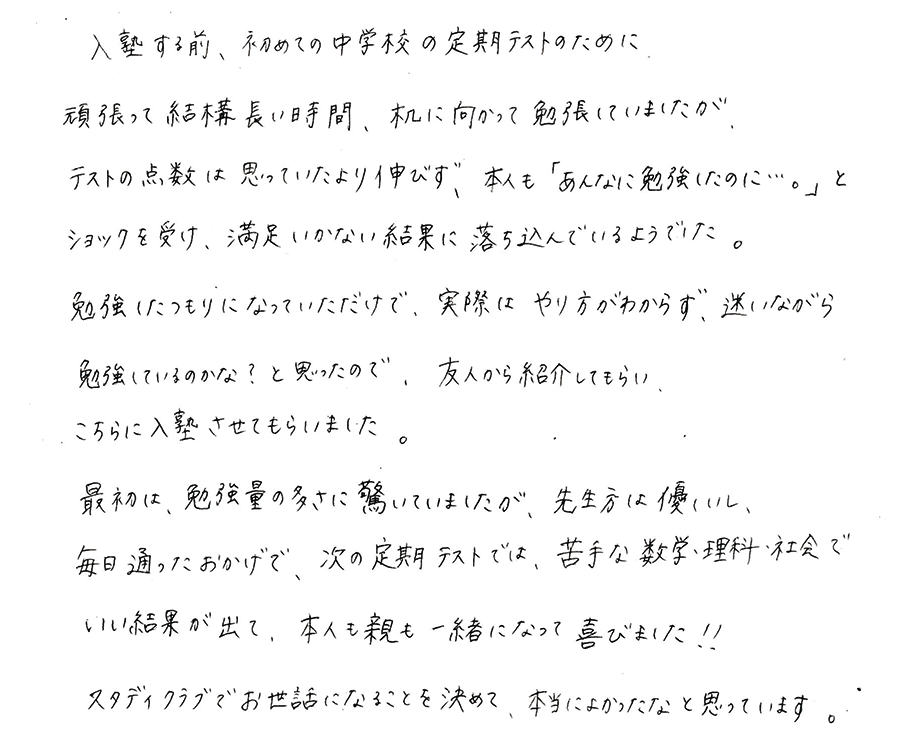 入塾する前、初めての中学校の定期テストのために
頑張って結構長い時間、机に向かって勉張していましたが、
テストの点数は思っていたより伸びず、本人も「あんなに勉強したのに…。」と
ショックを受け、満足いかない結果に落ち込んでいるようでした。
勉強したつもりになっていただけで、実際はやり方がわからず、迷いながら
勉強しているのかな?と思ったので、友人から紹介してもらい、
こちらに入塾させてもらいました。
最初は、勉強量の多さに驚いていましたが、先生方は優しいし、
毎日通ったおかげで、次の定期テストでは、苦手な数学・理科・社会で
いい結果が出て、本人も親も一緒になって喜びました!!
スタディクラブでお世話になることを決めて、本当によかったなと思っています。